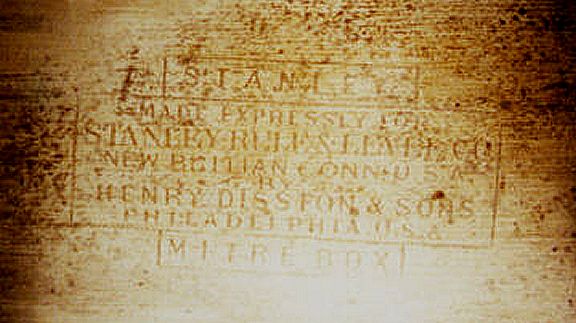 STANLEY
MADE EXPRESSLY FOR
STANLEY RULE & LEVEL CO.
NEW BRITIAN CONN. U.S.A.
BY
HENRY DISSTON & SONS
PHILADELPHIA U.S.A.
MITRE BOX